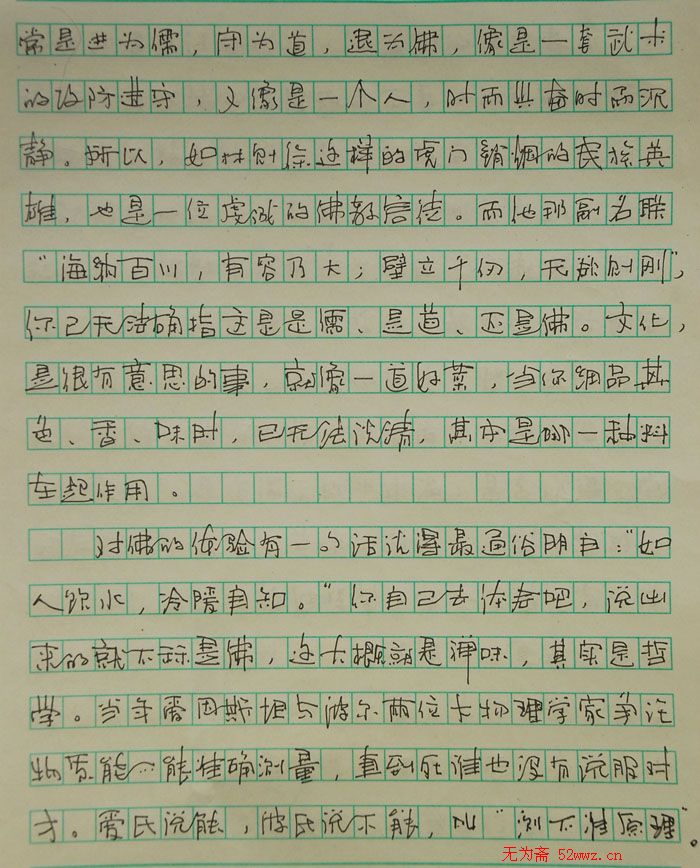 常是进为儒，守为道，退为佛，像是一套武术
的攻防进守，又像是一个人，时而兴奋时而沉
静。所以，如林则徐这样的虎门销烟的民族英
雄，也是一位虔诚的佛教信徒。而他那副名联
“海纳百川，有容乃大；壁立千仞，无欲则刚”，
你已无法确指这是是儒、是道、还是佛。文化，
是很有意思的事，就像一道好菜，当你细品其
色、香、味时，已无法说清，其中是哪一种料
在起作用。
对佛的体验有一句话说得最通俗明白：“如
人饮水，冷暖自知。”你自己去体会吧，说出
来的就不标是佛，这大概就是禅味，其实是哲
学。当年爱因斯坦与波尔两位大物理学家争论
物质能不能准确测量，直到死谁也没有说服对
方。爱氏说能，波氏说不能，叫“测不准原理”。
无为斋 52wwz.cn